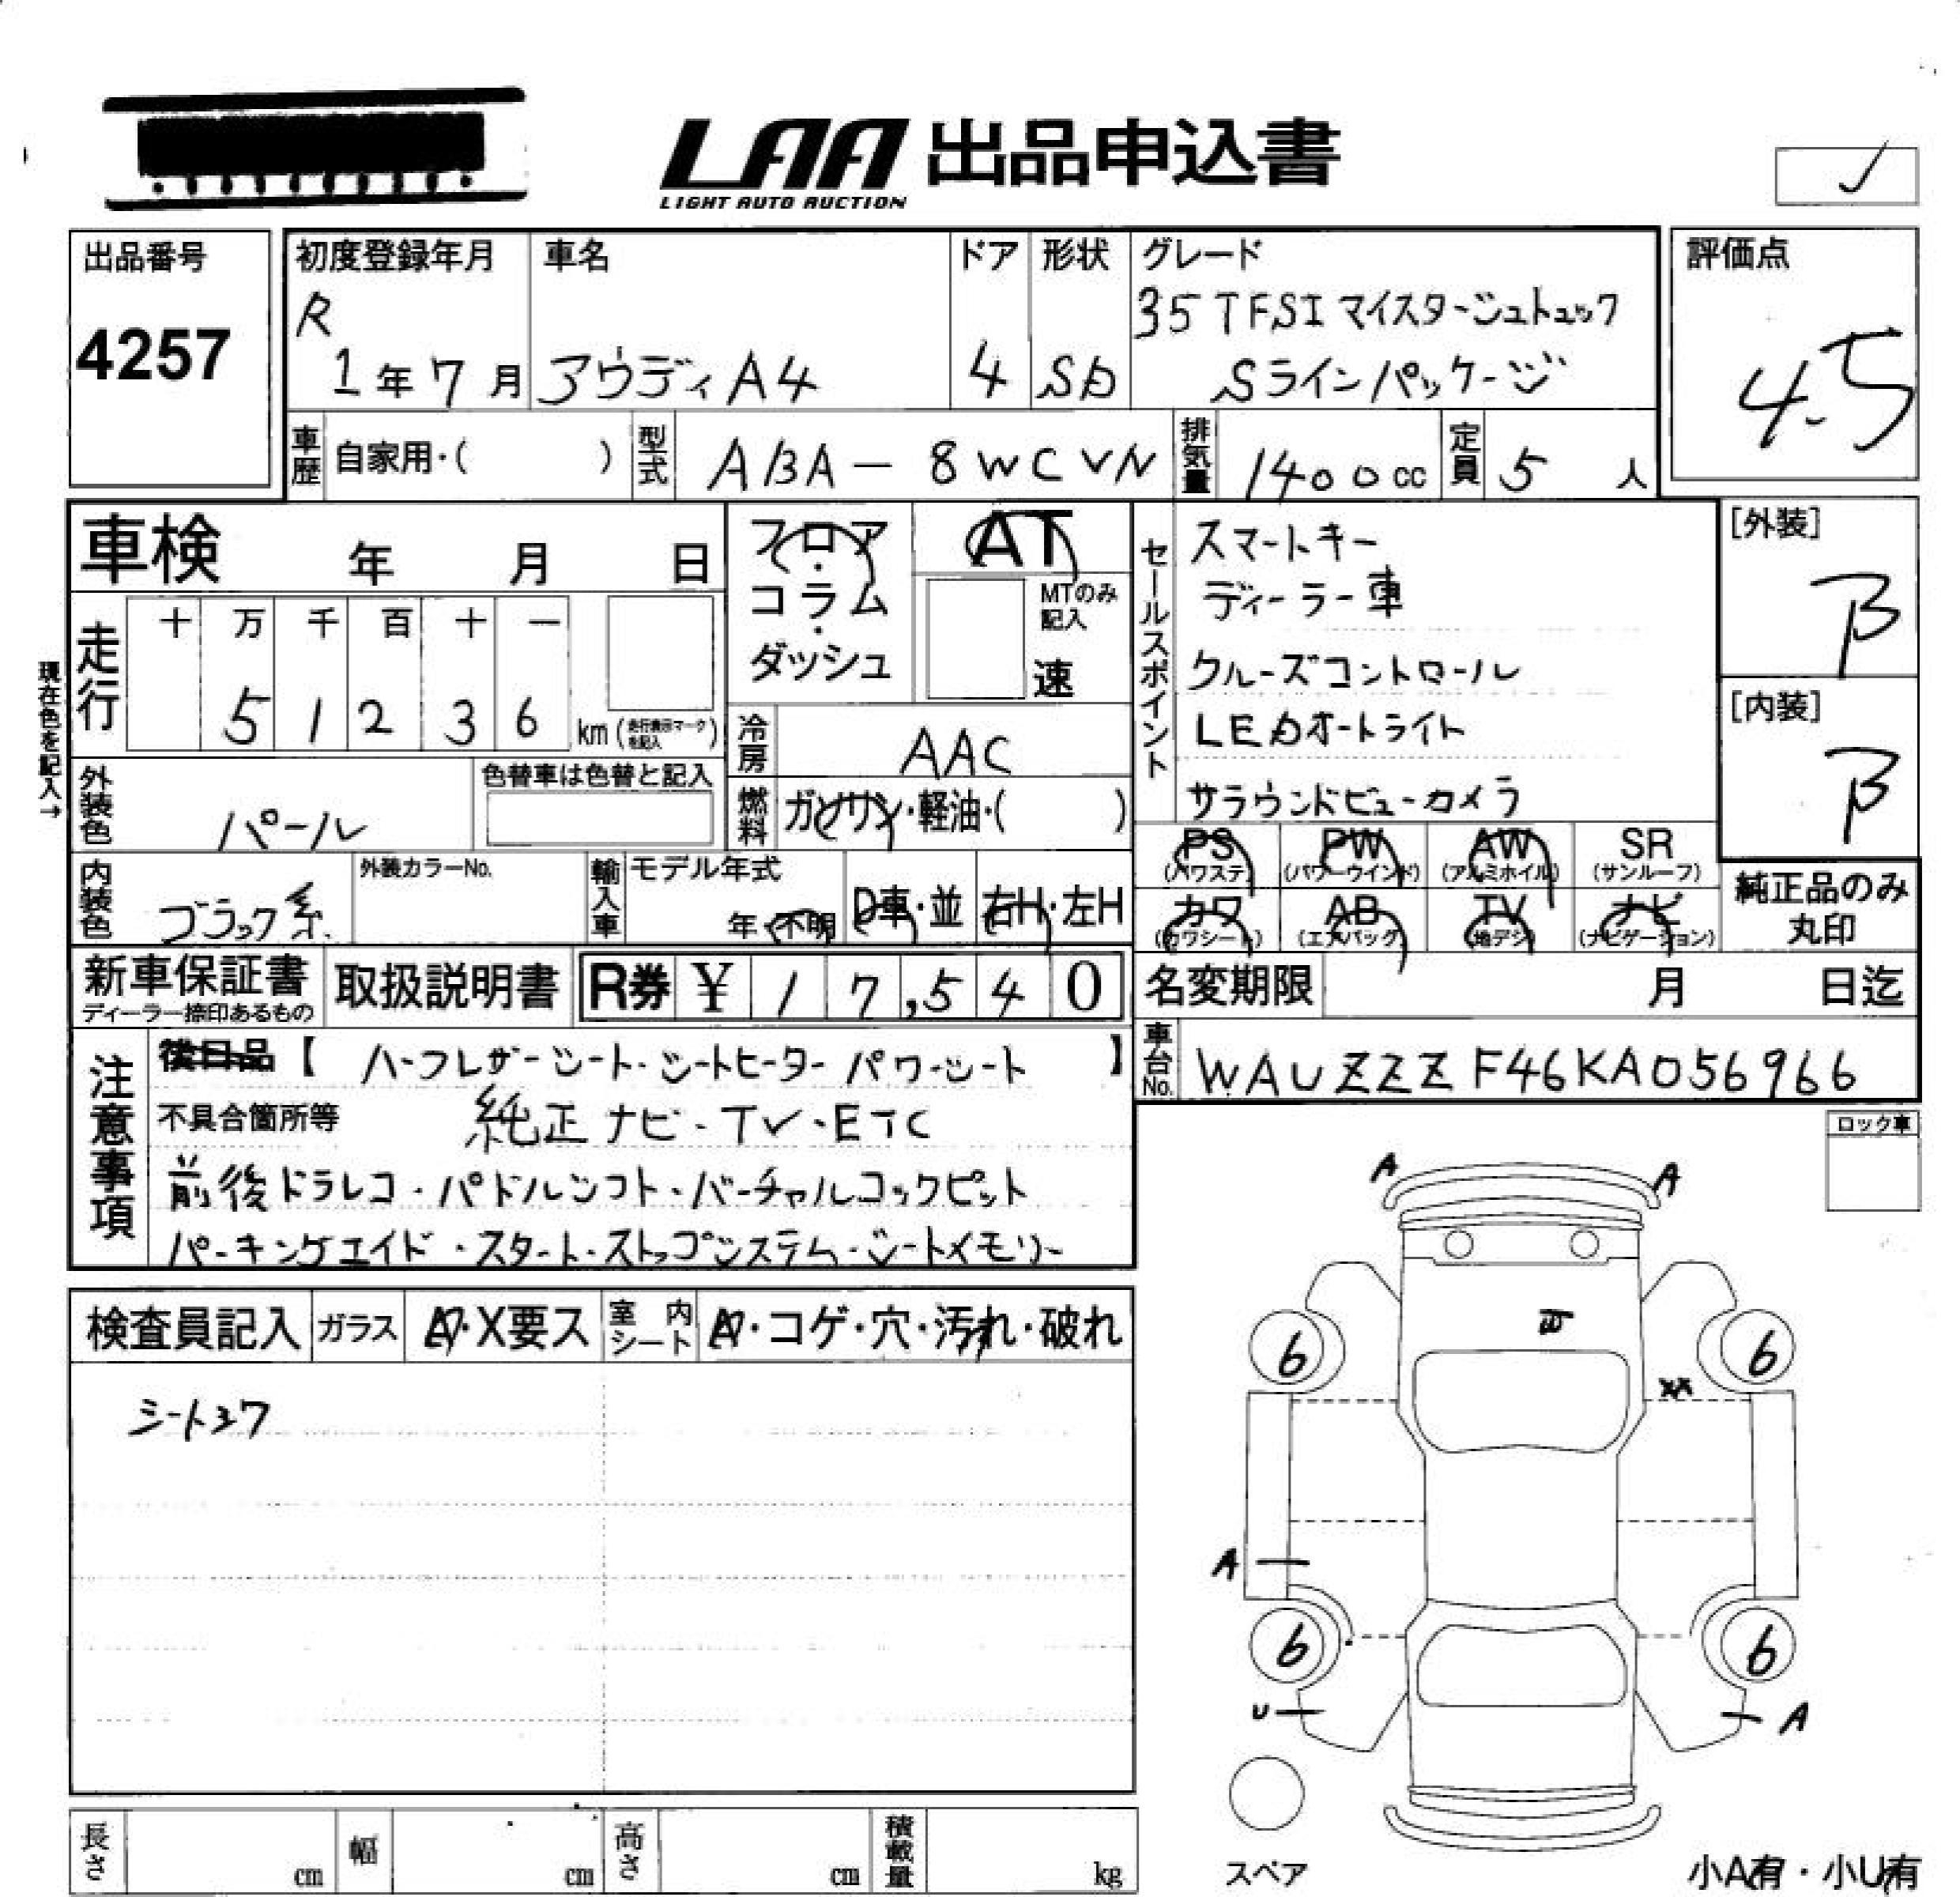 LAA 出品申込書
LIGHT AUTO AUCTION
出品番号
4257
初度登録年月
R
1年7月
車名
アウディA4
ドア
4
形状
SD
グレード
35 TFSI マイスターシュトュック
Sラインパッケージ
評価点
4.5
車歴 自家用・( )
型式 ABA-8WCVN
排気量 1400cc
定員 5人
車検 年 月 日
フロア・コラム・ダッシュ
AT
MTのみ記入
速
セールスポイント
スマートキー
ディーラー車
クルーズコントロール
LEDオートライト
サラウンドビューカメラ
[外装]
B
[内装]
B
現在色を記入→
走行
十 万 千 百 十 一
5 1 2 3 6 km(走行表示マークを記入)
冷房 AAC
外装色 パール
色替車は色替と記入
燃料 ガソリン・軽油・( )
内装色 ブラック系
外装カラーNo.
輸入車
モデル年式
年・不明
D車・並
右H・左H
PS (パワステ)
PW (パワーウインド)
AW (アルミホイル)
SR (サンルーフ)
カワ (カワシート)
AB (エアバッグ)
TV (地デジ)
ナビ (ナビゲーション)
純正品のみ丸印
新車保証書
ディーラー捺印あるもの
取扱説明書
R券 ¥17,540
名変期限 月 日迄
車台No. WAUZZZF46KA056966
注意事項
後日品【ハーフレザーシート・シートヒーター パワーシート】
不具合箇所等 純正ナビ・TV・ETC
前後ドラレコ・パドルシフト・バーチャルコックピット
パーキングエイド・スタート・ストップシステム・シートメモリー
ロック車
検査員記入
ガラス A・X要ス
室内シート A・コゲ・穴・汚れ・破れ
A A
6 6
XX
A
6 6
U A
スペア
小A有・小U有
長さ cm
幅 cm
高さ cm
積載量 kg